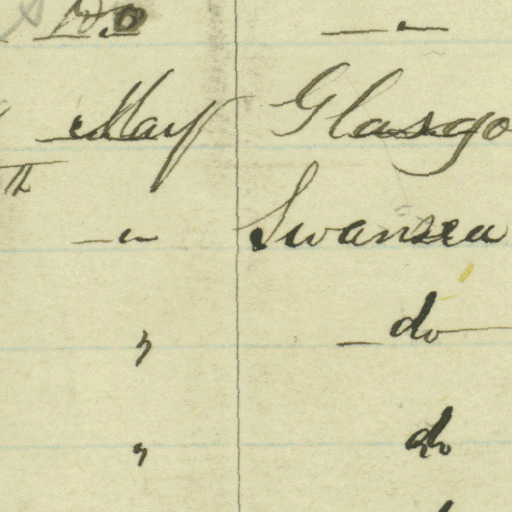 Do —„—
May Glasgo
th
—„— Swansea
„ do
„ do